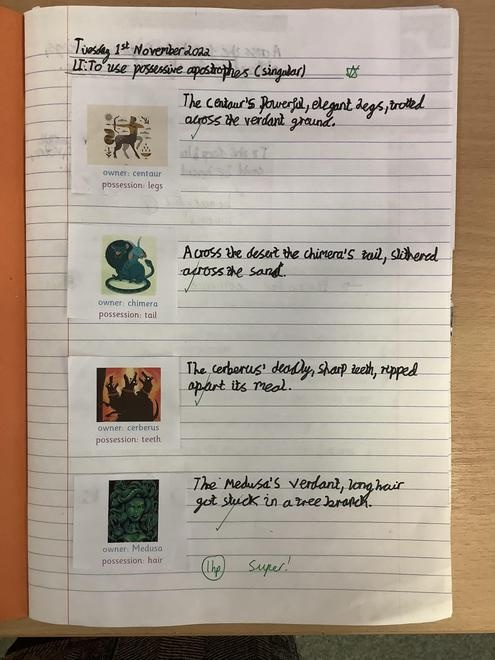 Tuesday 1st November 2022
LI: To use possessive apostrophes (singular)
The Centaur's powerful, elegant legs, trotted
across the verdant ground.
owner: centaur
possession: legs
Across the desert the chimera's tail, slithered
across the sand.
owner: chimera
possession: tail
The cerberus' deadly, sharp teeth, ripped
apart its meal.
owner: cerberus
possession: teeth
The Medusa's verdant, long hair
got stuck in a tree branch.
owner: Medusa
possession: hair
1hp Super!